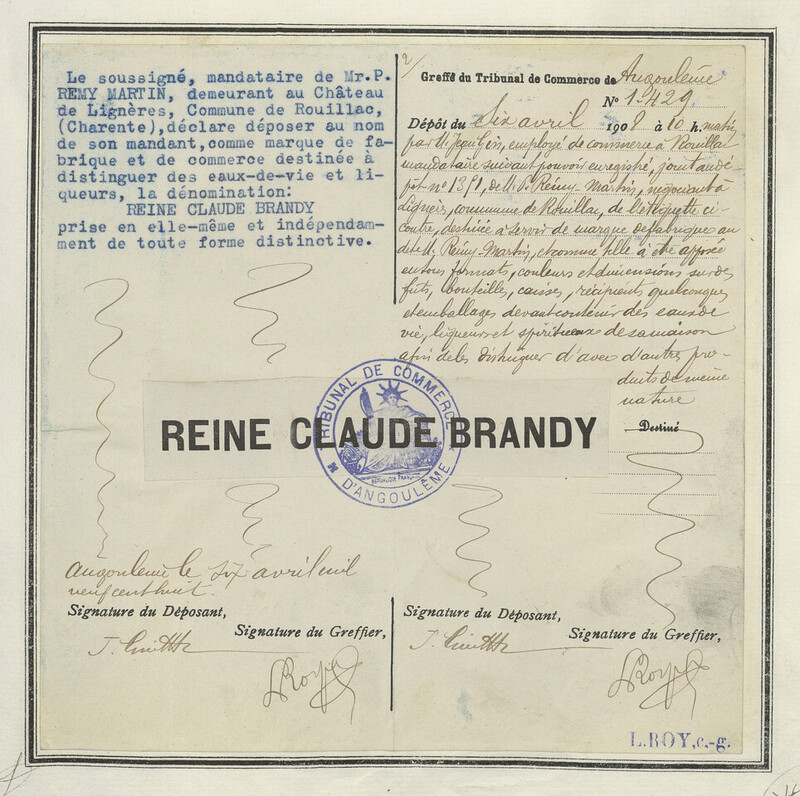 Le soussigné, mandataire de Mr.P.
REMY MARTIN, demeurant au Château
de Lignères, Commune de Rouillac,
(Charente),déclare déposer au nom
de son mandant,comme marque de fa-
brique et de commerce destinée à
distinguer des eaux-de-vie et li-
queurs, la dénomination:
REINE CLAUDE BRANDY
prise en elle-même et indépendam-
ment de toute forme distinctive.
2/
Greffe du Tribunal de Commerce de Angoulême
N° 1.429
Dépôt du Six avril 1908 à 10 h. matin
par M. Jean employé de commerce à Rouillac
mandataire suivant pouvoir enregistré, joint au dé-
pôt n° 1351, de M. P. Rémy-Martin, négociant à
Lignères, commune de Rouillac, de l'étiquette ci-
contre, destinée à servir de marque de fabrique au
dit M. Rémy-Martin, et comme telle à être apposée
en tous formats, couleurs et dimensions sur des
fûts, bouteilles, caisses, récipients quelconques
et emballages devant contenir des eaux de
vie, liqueurs et spiritueux de sa maison
afin de les distinguer d'avec d'autres pro-
duits de même
nature
REINE CLAUDE BRANDY
TRIBUNAL DE COMMERCE
D'ANGOULÊME
RÉPUBLIQUE FRANÇAISE
Destiné
Angoulême le six avril mil
neuf cent huit.
Signature du Déposant,
Signature du Greffier,
LRoy
Signature du Déposant,
Signature du Greffier,
LRoy
L.ROY,c.-g.